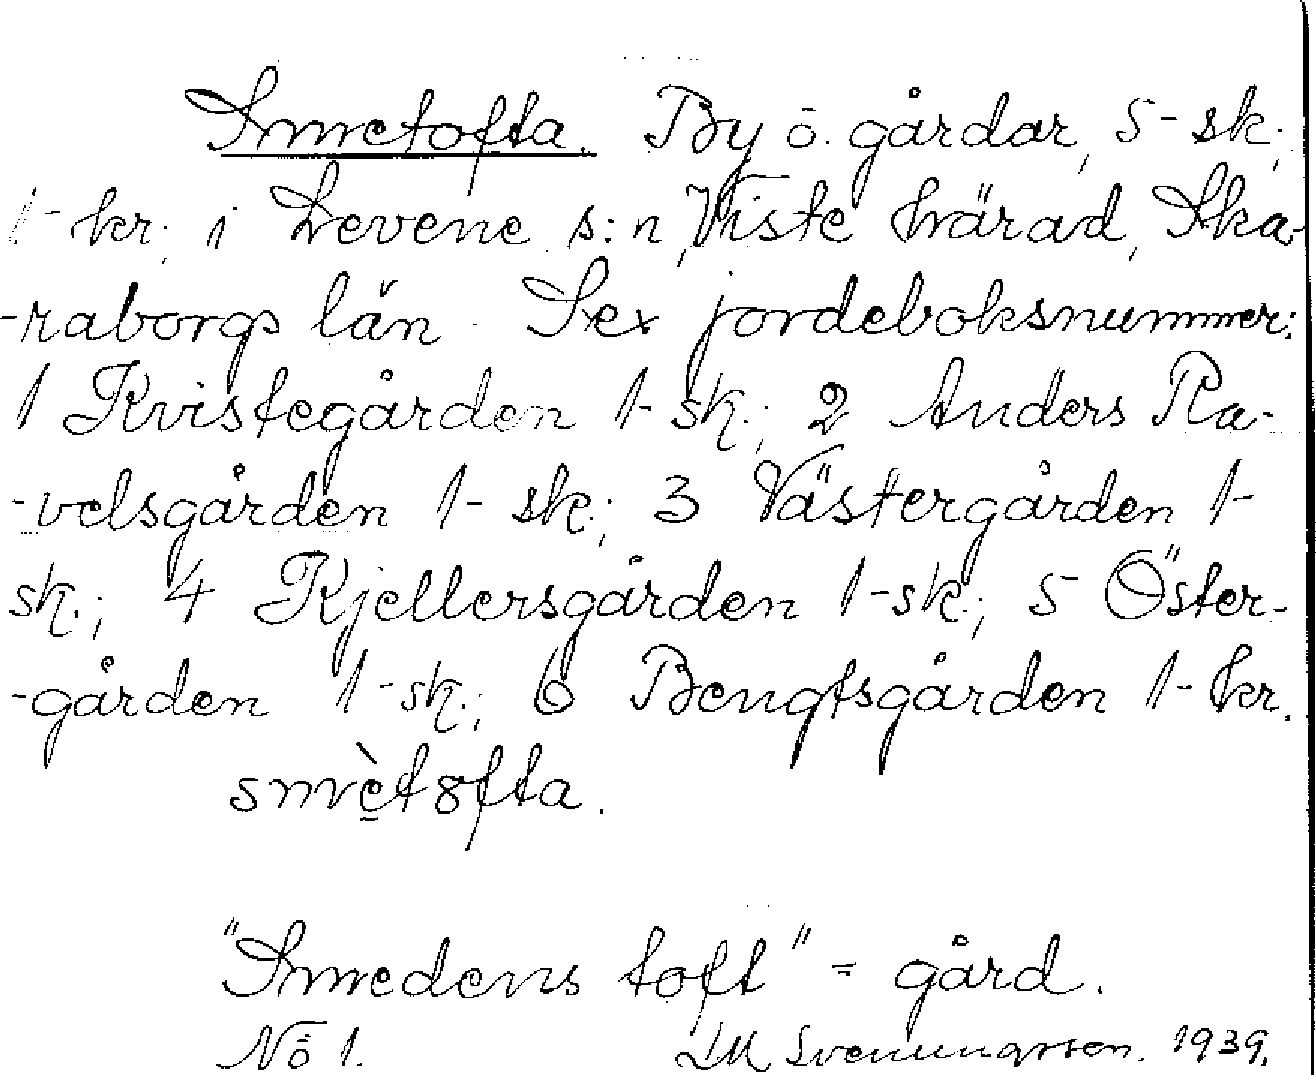 Smetofta. By 6. gårdar, 5- sk.,
1- kr. i Levene s:n, Viste härad, Ska-
-raborgs län. Sex jordeboksnummer:
1 Kvistegården 1- sk.; 2 Anders Ra-
-velsgården 1- sk.; 3 Västergården 1-
sk.; 4 Kjellersgården 1-sk.; 5 Öster-
-gården 1-sk.; 6 Bengtsgården 1- kr.
smètofta.
"Smedens toft" = gård.
No 1. LM Svenungsson. 1939.